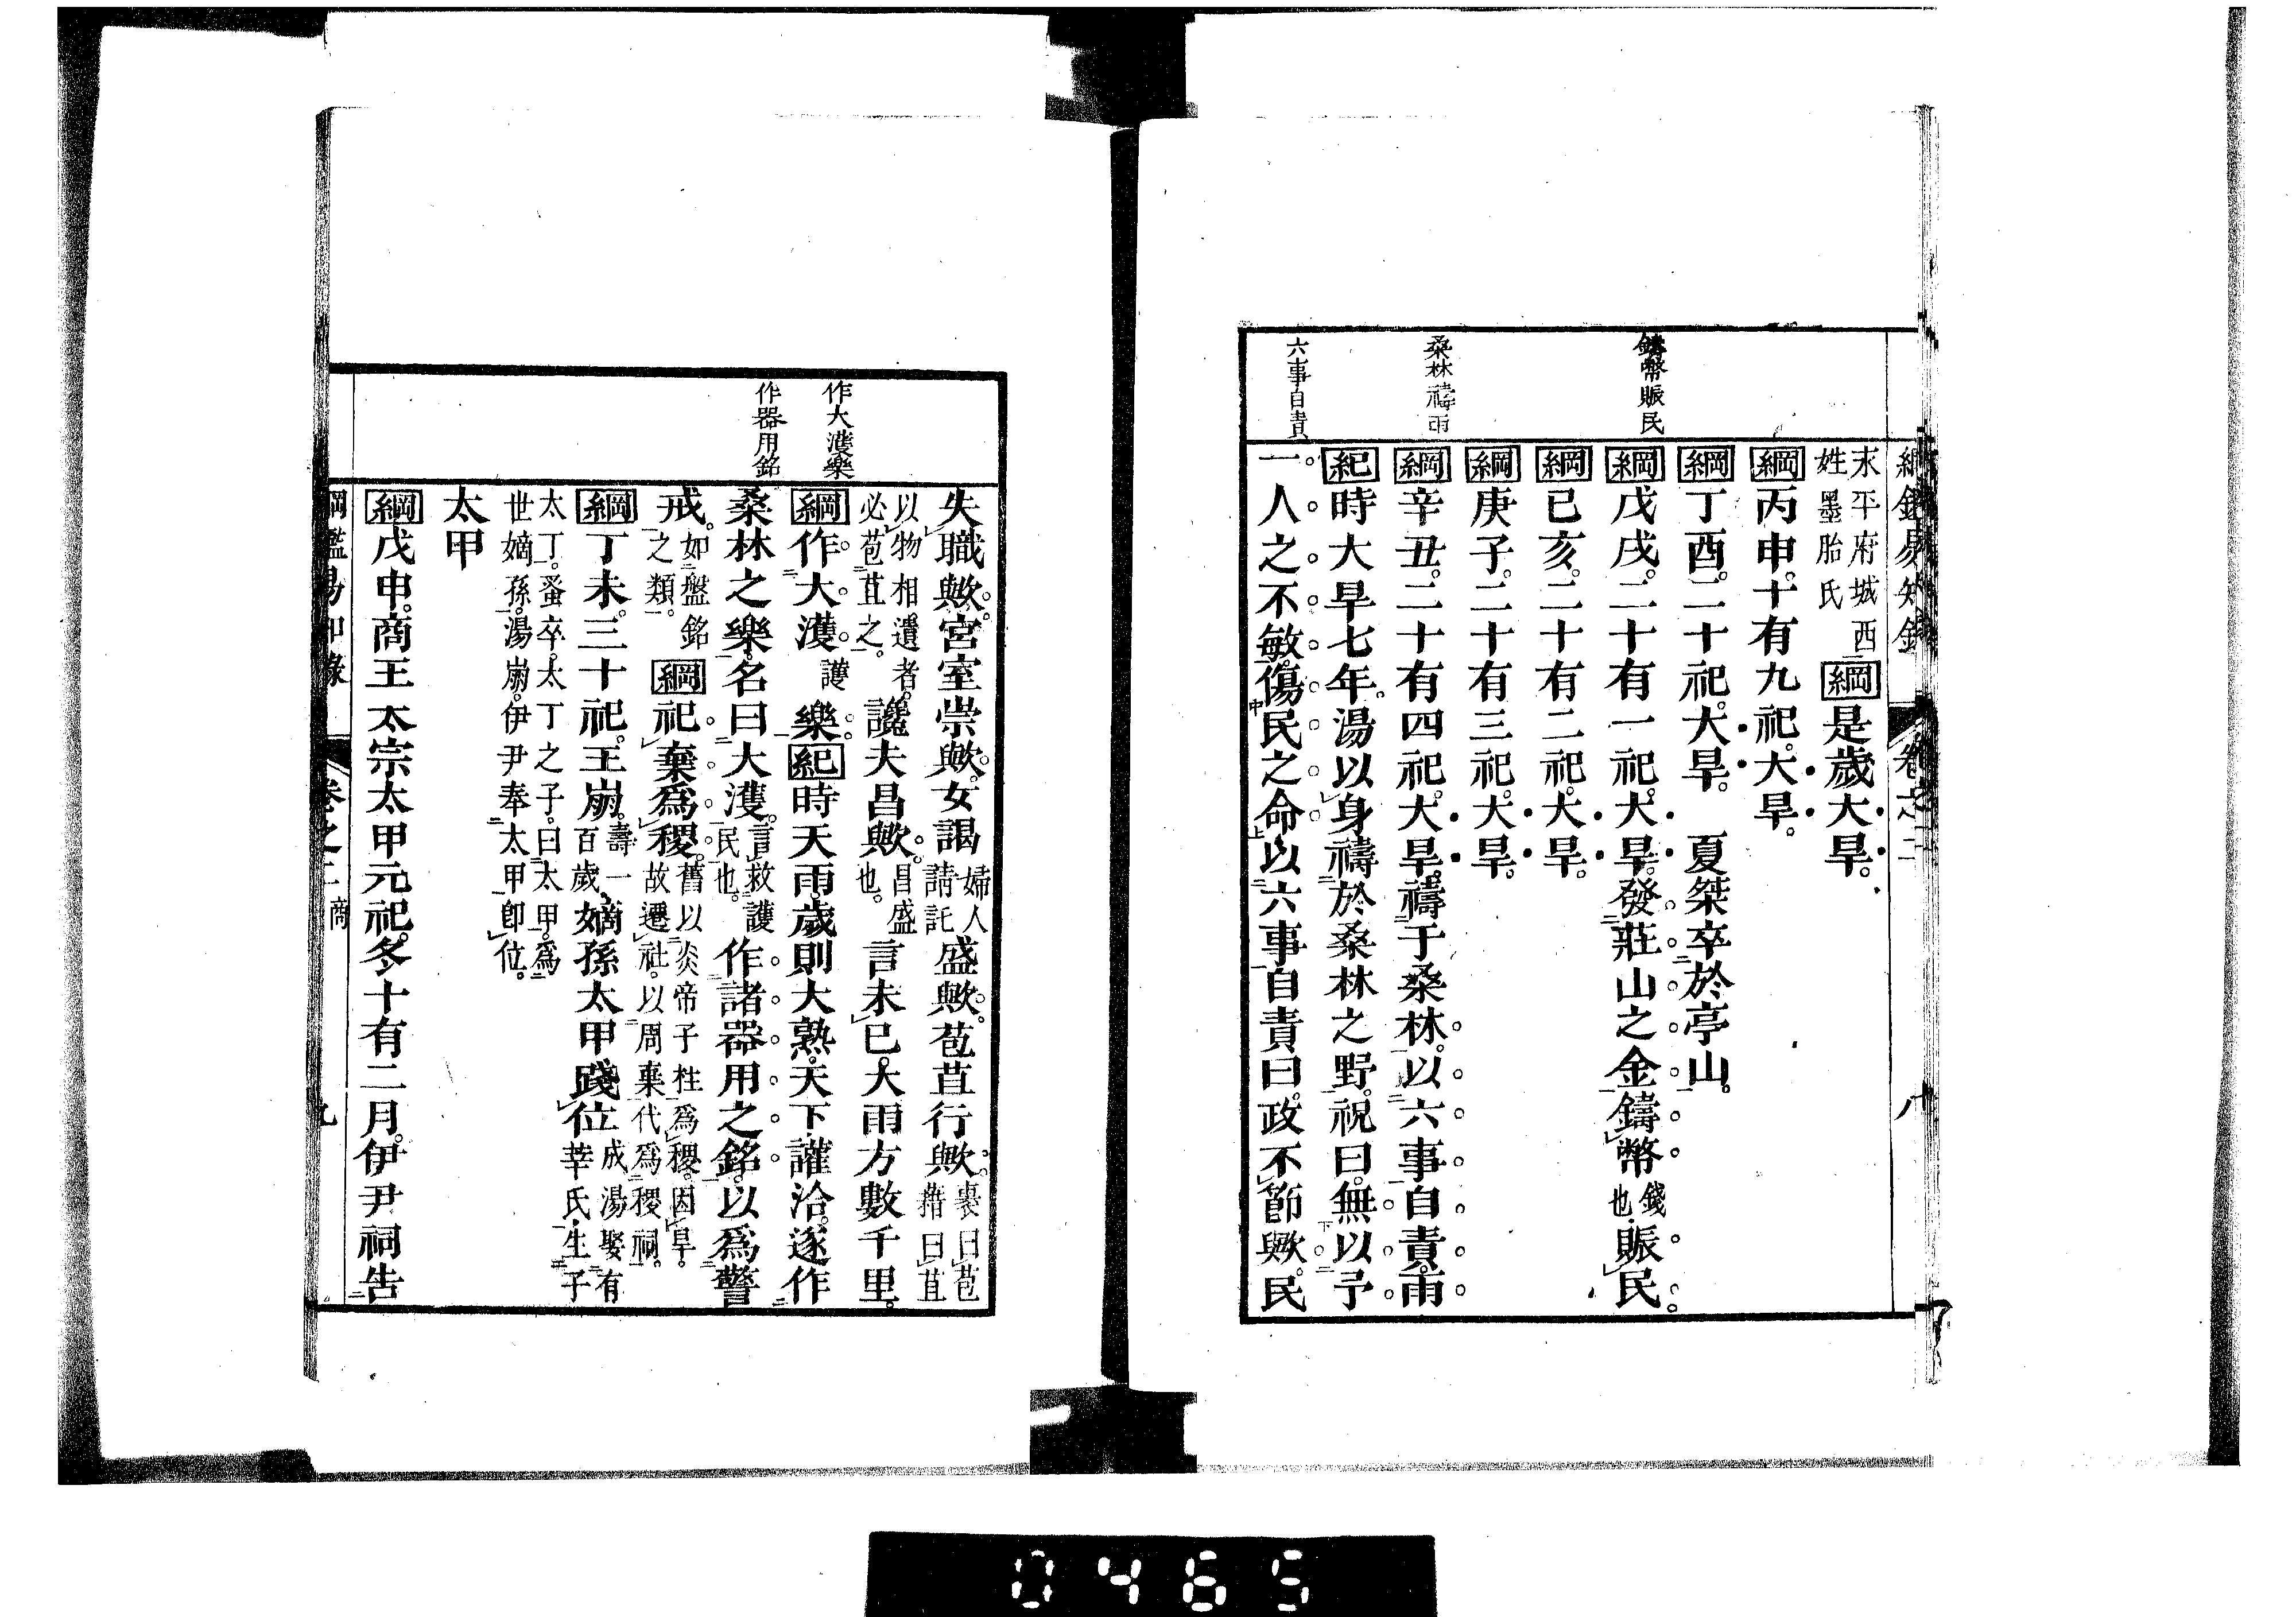 綱鑑易知錄 卷之二 八
鑄幣賑民
桑林禱雨
六事自責
末平府城西
姓墨胎氏
綱是歲大旱。
綱丙申。十有九祀。大旱。
綱丁酉。二十祀。大旱。 夏桀卒於亭山。
綱戊戌。二十有一祀。大旱。發莊山之金鑄幣錢也。賑民。
綱已亥。二十有二祀。大旱。
綱庚子。二十有三祀。大旱。
綱辛丑。二十有四祀。大旱。禱于桑林。以六事自責。雨
紀時大旱七年。湯以身禱於桑林之野。祝曰。無以予
一人之不敏。傷民之命。以六事自責曰。政不節歟。民
作大濩樂
作器用銘
失職歟。宮室崇歟。女謁婦人請託盛歟。苞苴行歟。裹曰苞藉曰苴
以物相遺者。必苞苴之。讒夫昌歟。昌盛也。言未已。大雨方數千里。
綱作大濩護樂。紀時天雨。歲則大熟。天下讙洽。遂作
桑林之樂。名曰大濩。言救護民也。作諸器用之銘。以爲警
戒。如盤銘之類。綱祀棄爲稷。舊以炎帝子柱爲稷。因旱。故遷社。以周棄代爲稷祠。
綱丁未。三十祀。王崩。壽一百歲。嫡孫太甲踐位成湯娶有莘氏。生子
太丁。蚤卒。太丁之子。曰太甲。爲世嫡孫。湯崩。伊尹奉太甲卽位。
太甲
綱戊申。商王太宗太甲元祀。冬十有二月。伊尹祠告
綱鑑易知錄 卷之二 商 九
0465